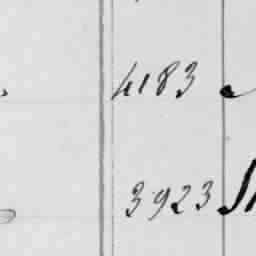 4183
3923